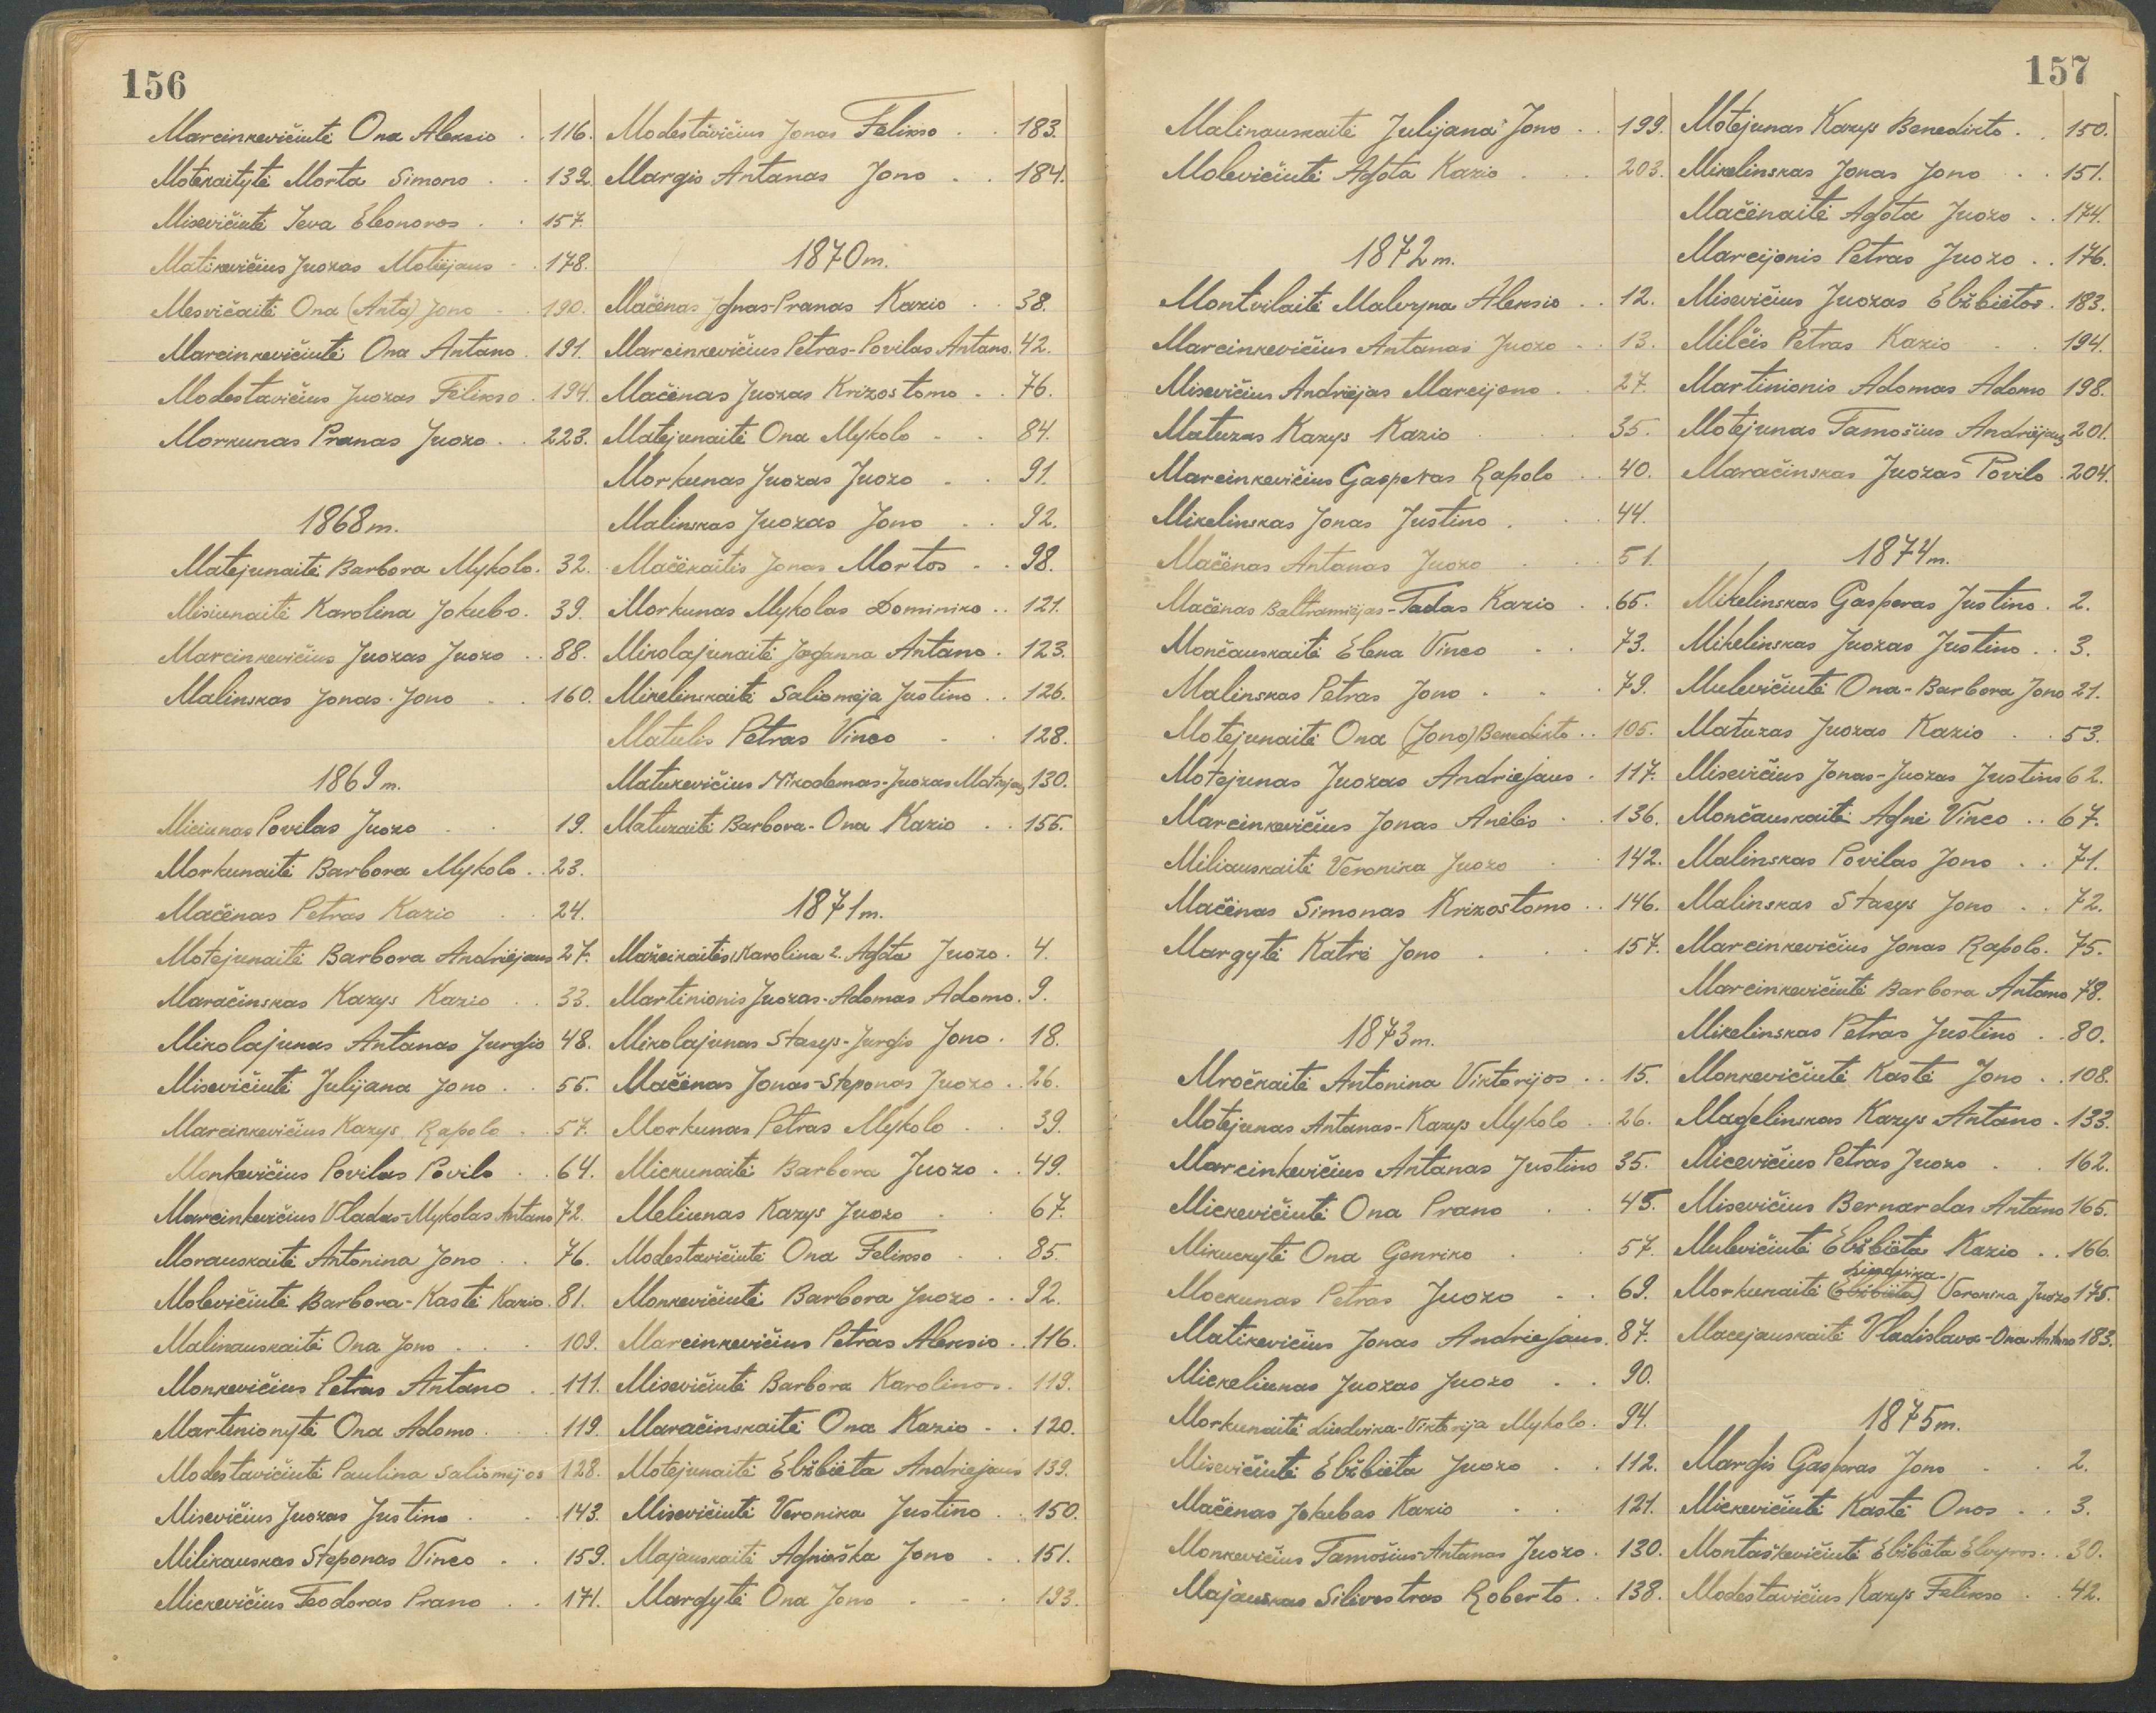 156
Marcinkevičiutė Ona Aleksio . . 116.
Motekaitytė Morta Simono . . 132.
Misevičiutė Ieva Eleonoros . . 157.
Matikevičius Juozas Motiejaus . . 178.
Mesvičaitė Ona (Anta) Jono . . 190.
Marcinkevičiutė Ona Antano . 191.
Modestavičius Juozas Felikso . 194.
Morkunas Pranas Juozo . . 223.
1868 m.
Matejunaitė Barbora Mykolo . 32.
Misiunaitė Karolina Jokubo . 39.
Marcinkevičius Juozas Juozo . . 88.
Malinskas Jonas Jono . . 160.
1869 m.
Miciunas Povilas Juozo . . 19.
Morkunaitė Barbora Mykolo . . 23.
Mačėnas Petras Kazio . . 24.
Motejunaitė Barbora Andriėjaus 27.
Maračinskas Kazys Kazio . . 33.
Mikolajunas Antanas Jurgio 48.
Misevičiutė Julijana Jono . . 55.
Marcinkevičius Kazys Rapolo . . 57.
Monkevičius Povilas Povilo . . 64.
Marcinkevičius Vladas-Mykolas Antano 72.
Morauskaitė Antonina Jono . . 76.
Molevičiutė Barbora-Kastė Kazio . 81.
Malinauskaitė Ona Jono . . . 109.
Monkevičius Petras Antano . . 111.
Martinionytė Ona Adomo . . 119.
Modestavičiutė Paulina Saliomėjos 128.
Misevičius Juozas Justino . . 143.
Milikauskas Steponas Vinco . . 159.
Mickevičius Teodoras Prano . . 171.
Modestavičius Jonas Felikso . . 183.
Margis Antanas Jono . . 184.
1870 m.
Mačėnas Jonas-Pranas Kazio . . 38.
Marcinkevičius Petras-Povilas Antano. 42.
Mačėnas Juozas Krizostomo . . 76.
Matejunaitė Ona Mykolo . . 84.
Morkunas Juozas Juozo . . 91.
Malinskas Juozas Jono . . 92.
Mačėkaitis Jonas Mortos . . 98.
Morkunas Mykolas Dominiko . . 121.
Mikolajunaitė Joganna Antano . 123.
Mikelinskaitė Saliomėja Justino . . 126.
Matulis Petras Vinco . . 128.
Matukevičius Nikodemas-Juozas Motiejaus 130.
Matuzaitė Barbora-Ona Kazio . . 155.
1871 m.
Mažeikaitės 1. Karolina 2. Agota Juozo . 4.
Martinionis Juozas-Adomas Adomo . 9.
Mikolajunas Stasys-Jurgis Jono . 18.
Mačėnas Jonas-Steponas Juozo . . 26.
Morkunas Petras Mykolo . . 39.
Mickunaitė Barbora Juozo . . 49.
Meliunas Kazys Juozo . . 67.
Modestavičiutė Ona Felikso . . 85.
Monkevičiutė Barbora Juozo . . 92.
Marcinkevičius Petras Aleksio . . 116.
Misevičiutė Barbora Karolinos . 119.
Maračinskaitė Ona Kazio . . 120.
Motejunaitė Elžbiėta Andriejaus 139.
Misevičiutė Veronika Justino . . 150.
Majauskaitė Agnieška Jono . . 151.
Margytė Ona Jono . . . 193.
157
Malinauskaitė Julijana Jono . . 199.
Molevičiutė Agota Kazio . . . 203.
1872 m.
Montvilaitė Malvyna Aleksio . . 12.
Marcinkevičius Antanas Juozo . . 13.
Misevičius Andriėjas Marcijono . . 27.
Matuzas Kazys Kazio . . . 35.
Marcinkevičius Gasperas Rapolo . . 40.
Mikelinskas Jonas Justino . . . 44.
Mačėnas Antanas Juozo . . . 51.
Mačėnas Baltramiėjas-Tadas Kazio . . 65.
Mončauskaitė Elena Vinco . . 73.
Malinskas Petras Jono . . . 79.
Motejunaitė Ona (Jono) Benedikto . . 105.
Motejunas Juozas Andriejaus . 117.
Marcinkevičius Jonas Anėlės . . 136.
Miliauskaitė Veronika Juozo . . 142.
Mačėnas Simonas Krizostomo . . 146.
Margytė Katrė Jono . . . 157.
1873 m.
Mročkaitė Antonina Viktorijos . . 15.
Motejunas Antanas-Kazys Mykolo . . 26.
Marcinkevičius Antanas Justino 35.
Mickevičiutė Ona Prano . . 45.
Mikuckytė Ona Genriko . . 57.
Mockunas Petras Juozo . . 69.
Matikevičius Jonas Andriejaus . 87.
Mickeliunas Juozas Juozo . . 90.
Morkunaitė Liudvika-Viktorija Mykolo . 94.
Misevičiutė Elžbiėta Juozo . . 112.
Mačėnas Jokubas Kazio . . 121.
Monkevičius Tamošius-Antanas Juozo . 130.
Majauskas Silivestras Roberto . . 138.
Motejunas Kazys Benedikto . . 150.
Mikelinskas Jonas Jono . . 151.
Mačėnaitė Agota Juozo . . 174.
Marcijonis Petras Juozo . . 176.
Misevičius Juozas Elžbiėtos . 183.
Milčis Petras Kazio . . 194.
Martinionis Adomas Adomo 198.
Motejunas Tamošius Andriėjaus 201.
Maračinskas Juozas Povilo . 204.
1874 m.
Mikelinskas Gasperas Justino . 2.
Mikelinskas Juozas Justino . . 3.
Mulevičiutė Ona-Barbora Jono 21.
Matuzas Juozas Kazio . . 53.
Misevičius Jonas-Juozas Justino 62.
Mončauskaitė Agnė Vinco . . 67.
Malinskas Povilas Jono . . 71.
Malinskas Stasys Jono . . 72.
Marcinkevičius Jonas Rapolo . 75.
Marcinkevičiutė Barbora Antano 78.
Mikelinskas Petras Justino . . 80.
Monkevičiutė Kastė Jono . . 108.
Magelinskas Kazys Antano . 133.
Micevičius Petras Juozo . . 162.
Misevičius Bernardas Antano 165.
Mulevičiutė Elžbiėta Kazio . . 166.
Liudvika-
Morkunaitė (Elžbiėta) Veronika Juozo 175.
Macejauskaitė Vladislava-Ona Antano 183.
1875 m.
Margis Gasperas Jono . . 2.
Mickevičiutė Kastė Onos . . 3.
Montaškevičiutė Elžbiėta Elvyros . . 30.
Modestavičius Kazys Felikso . . 42.